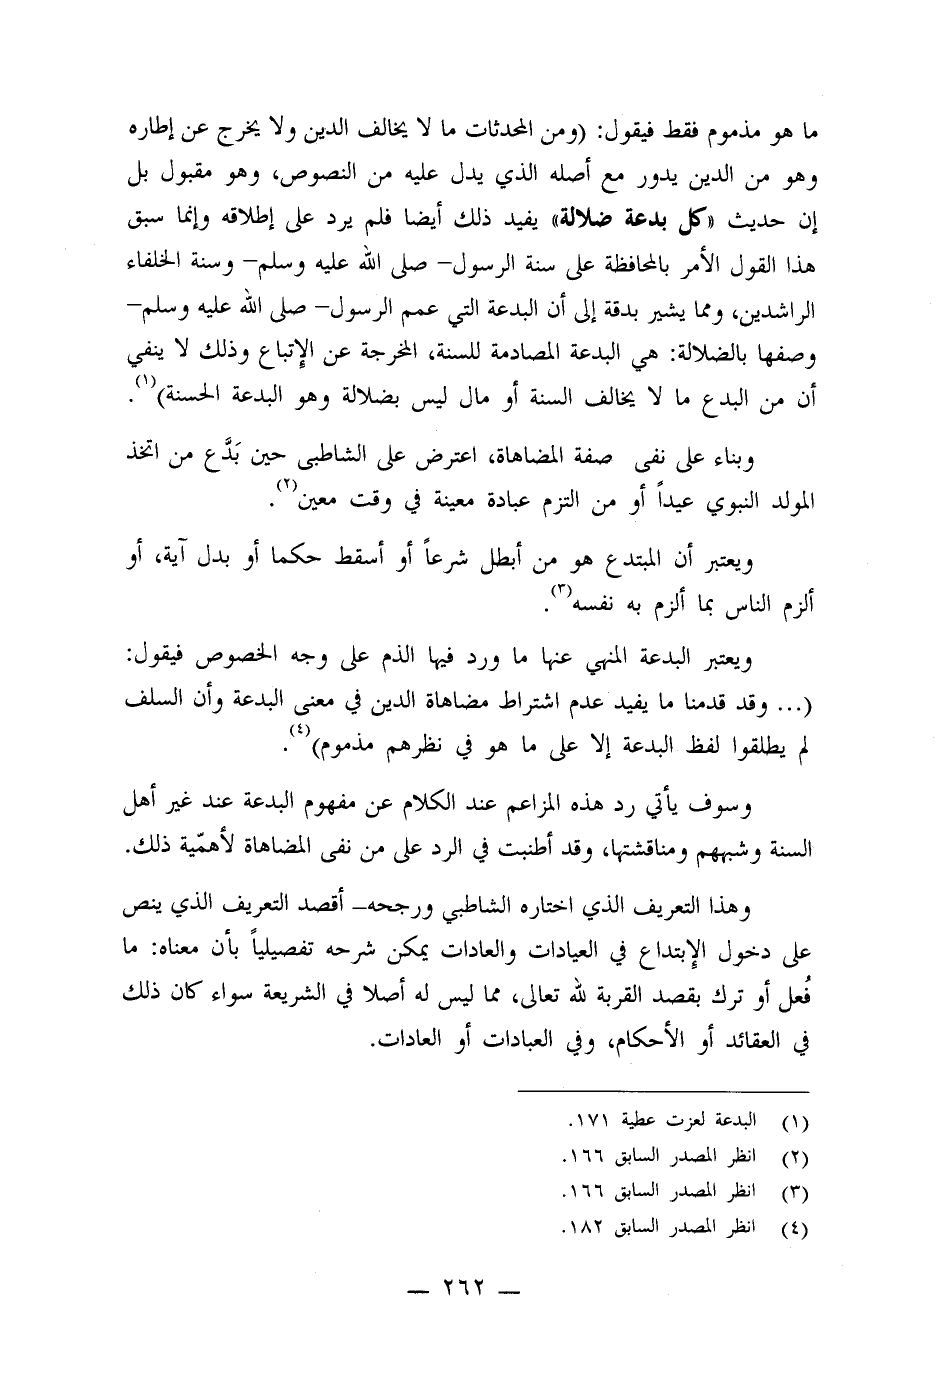 ما هو مذموم فقط فيقول: (ومن المحدثات ما لا يخالف الدين ولا يخرج عن إطاره
وهو من الدين يدور مع أصله الذي يدل عليه من النصوص، وهو مقبول بل
إن حديث «كل بدعة ضلالة» يفيد ذلك أيضا فلم يرد على إطلاقه وإنما سبق
هذا القول الأمر بالمحافظة على سنة الرسول– صلى الله عليه وسلم– وسنة الخلفاء
الراشدين، ومما يشير بدقة إلى أن البدعة التي عمم الرسول– صلى الله عليه وسلم–
وصفها بالضلالة: هي البدعة المصادمة للسنة، المخرجة عن الإتباع وذلك لا ينفي
أن من البدع ما لا يخالف السنة أو مال ليس بضلالة وهو البدعة الحسنة)(١).
وبناء على نفى صفة المضاهاة، اعترض على الشاطبى حين بَدَّع من اتخذ
المولد النبوي عيداً أو من التزم عبادة معينة في وقت معين(٢).
ويعتبر أن المبتدع هو من أبطل شرعاً أو أسقط حكما أو بدل آية، أو
ألزم الناس بما ألزم به نفسه(٣).
ويعتبر البدعة المنهي عنها ما ورد فيها الذم على وجه الخصوص فيقول:
(... وقد قدمنا ما يفيد عدم اشتراط مضاهاة الدين في معنى البدعة وأن السلف
لم يطلقوا لفظ البدعة إلا على ما هو في نظرهم مذموم)(٤).
وسوف يأتي رد هذه المزاعم عند الكلام عن مفهوم البدعة عند غير أهل
السنة وشبههم ومناقشتها، وقد أطنبت في الرد على من نفى المضاهاة لأهمّية ذلك.
وهذا التعريف الذي اختاره الشاطبي ورجحه– أقصد التعريف الذي ينص
على دخول الإبتداع في العبادات والعادات يمكن شرحه تفصيلياً بأن معناه: ما
فُعل أو ترك بقصد القربة لله تعالى، مما ليس له أصلا في الشريعة سواء كان ذلك
في العقائد أو الأحكام، وفي العبادات أو العادات.
(١) البدعة لعزت عطية ١٧١.
(٢) انظر المصدر السابق ١٦٦.
(٣) انظر المصدر السابق ١٦٦.
(٤) انظر المصدر السابق ١٨٢.
— ٢٦٢ —